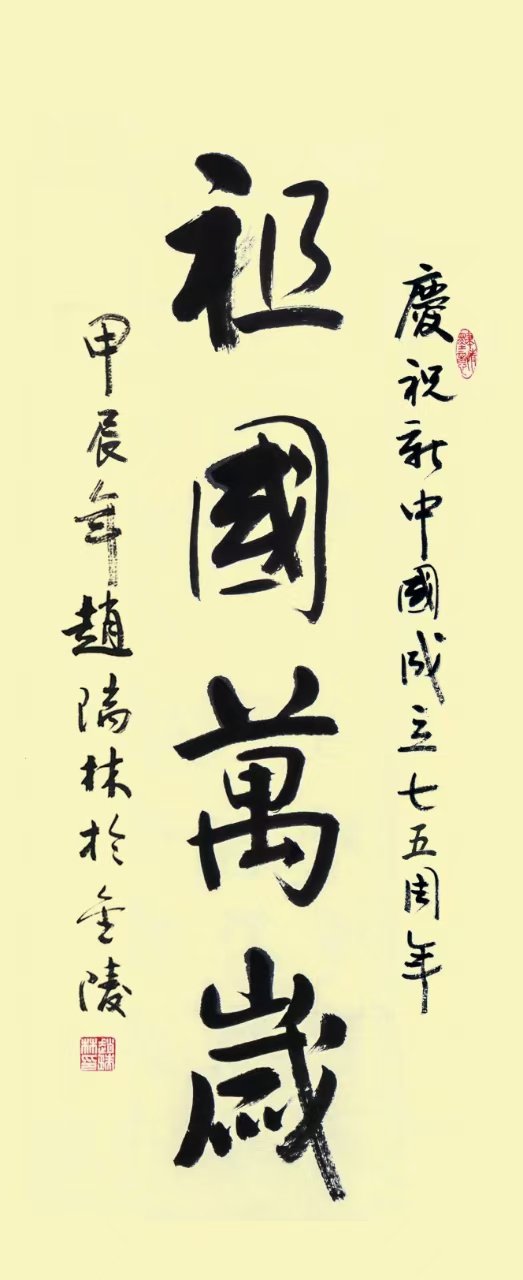 慶祝新中國成立七五周年
祖國萬歲
甲辰年趙瑞林於金陵